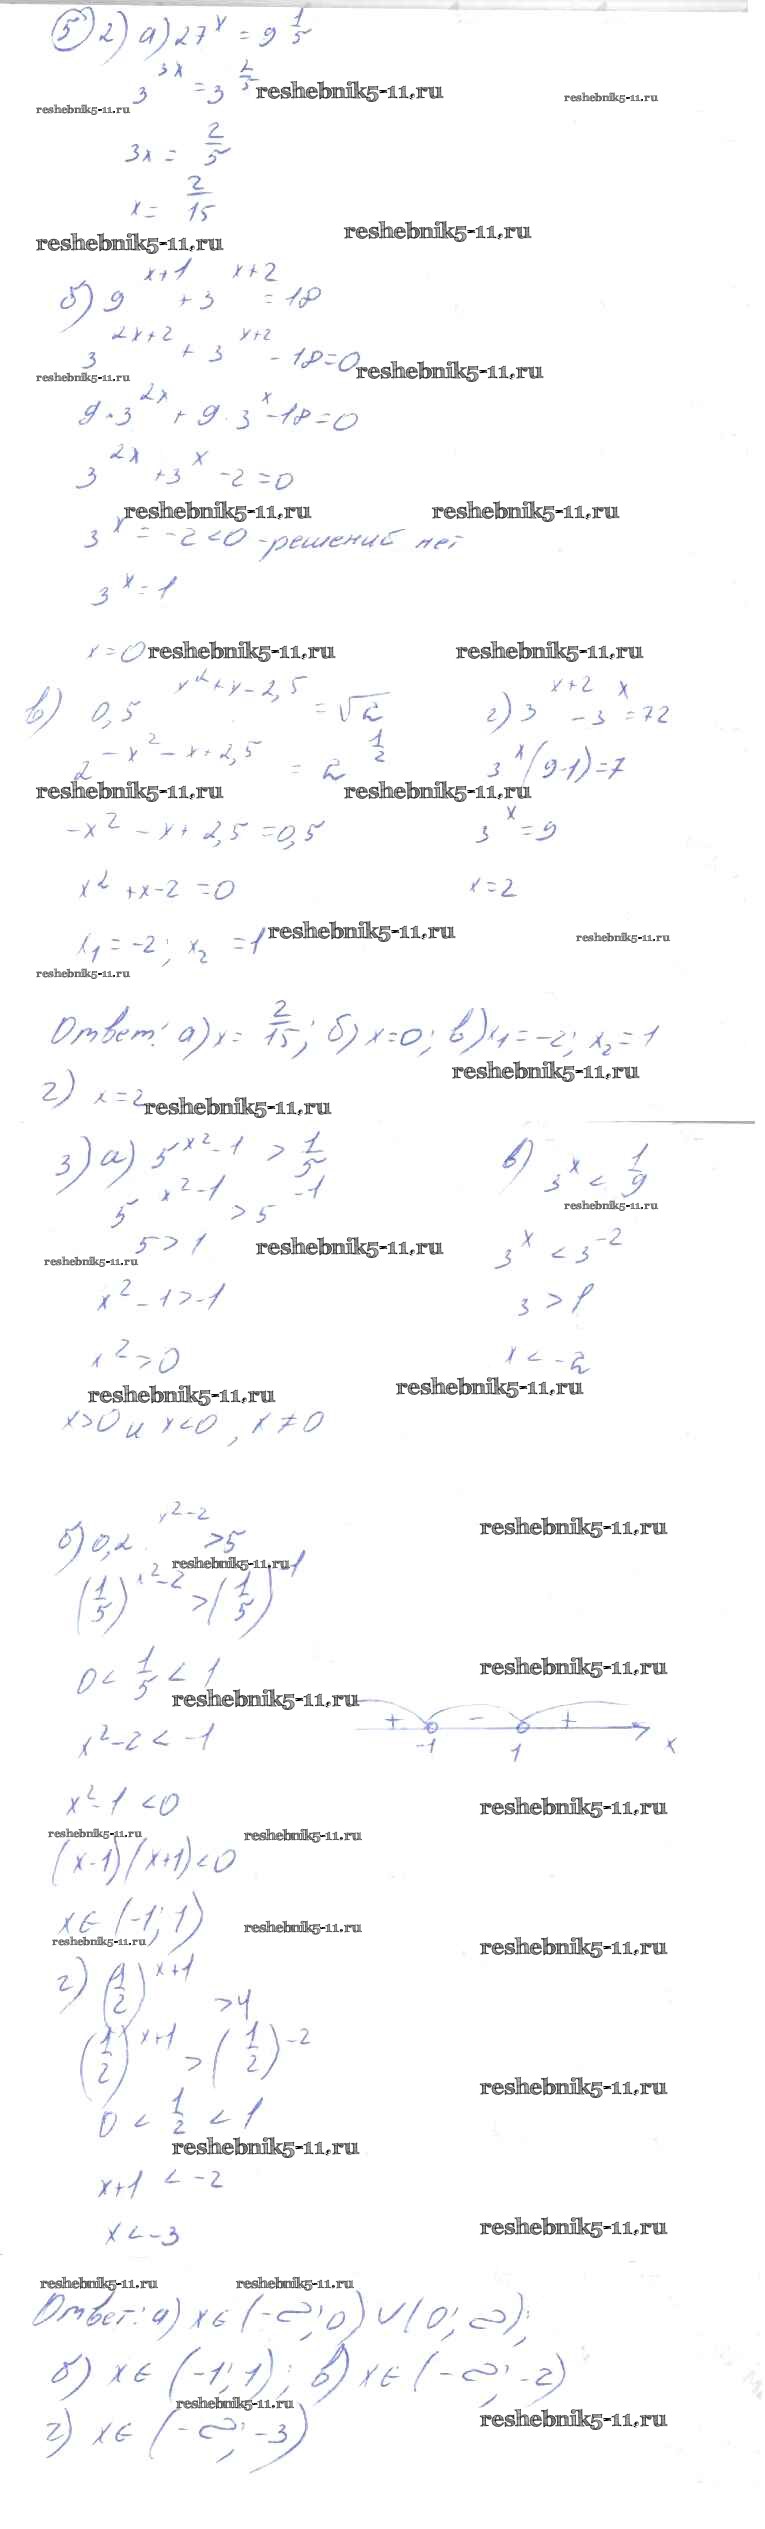 5 2) а) 27^x = 9^{1/5}
3^{3x} = 3^{2/5}
reshebnik5-11.ru
reshebnik5-11.ru
reshebnik5-11.ru
3x = 2/5
x = 2/15
reshebnik5-11.ru
reshebnik5-11.ru
б) 9^{x+1} + 3^{x+2} = 18
3^{2x+2} + 3^{x+2} - 18 = 0
reshebnik5-11.ru
reshebnik5-11.ru
9·3^{2x} + 9·3^x - 18 = 0
3^{2x} + 3^x - 2 = 0
reshebnik5-11.ru
reshebnik5-11.ru
3^x = -2 < 0 - решений нет
3^x = 1
x = 0
reshebnik5-11.ru
reshebnik5-11.ru
в) 0,5^{x²+x-2,5} = √2
2^{-x²-x+2,5} = 2^{1/2}
reshebnik5-11.ru
-x² - x + 2,5 = 0,5
x² + x - 2 = 0
x₁ = -2; x₂ = 1
г) 3^{x+2} - 3^x = 72
3^x(9-1) = 7
reshebnik5-11.ru
3^x = 9
x = 2
reshebnik5-11.ru
reshebnik5-11.ru
reshebnik5-11.ru
Ответ: а) x = 2/15; б) x = 0; в) x₁ = -2; x₂ = 1
reshebnik5-11.ru
г) x = 2
reshebnik5-11.ru
3) а) 5^{x²-1} > 1/5
5^{x²-1} > 5^{-1}
5 > 1
reshebnik5-11.ru
reshebnik5-11.ru
x² - 1 > -1
x² > 0
reshebnik5-11.ru
x > 0 и x < 0, x ≠ 0
в) 3^x < 1/9
reshebnik5-11.ru
3^x < 3^{-2}
3 > 1
x < -2
reshebnik5-11.ru
б) 0,2^{x²-2} > 5
reshebnik5-11.ru
reshebnik5-11.ru
(1/5)^{x²-2} > (1/5)^{-1}
0 < 1/5 < 1
reshebnik5-11.ru
reshebnik5-11.ru
+ - +
-1 1 x
x² - 2 < -1
x² - 1 < 0
reshebnik5-11.ru
reshebnik5-11.ru
reshebnik5-11.ru
(x-1)(x+1) < 0
x ∈ (-1; 1)
reshebnik5-11.ru
reshebnik5-11.ru
reshebnik5-11.ru
г) (1/2)^{x+1} > 4
(1/2)^{x+1} > (1/2)^{-2}
reshebnik5-11.ru
0 < 1/2 < 1
reshebnik5-11.ru
x+1 < -2
x < -3
reshebnik5-11.ru
reshebnik5-11.ru
reshebnik5-11.ru
Ответ: а) x ∈ (-∞; 0) ∪ (0; ∞);
б) x ∈ (-1; 1); в) x ∈ (-∞; -2)
reshebnik5-11.ru
reshebnik5-11.ru
г) x ∈ (-∞; -3)